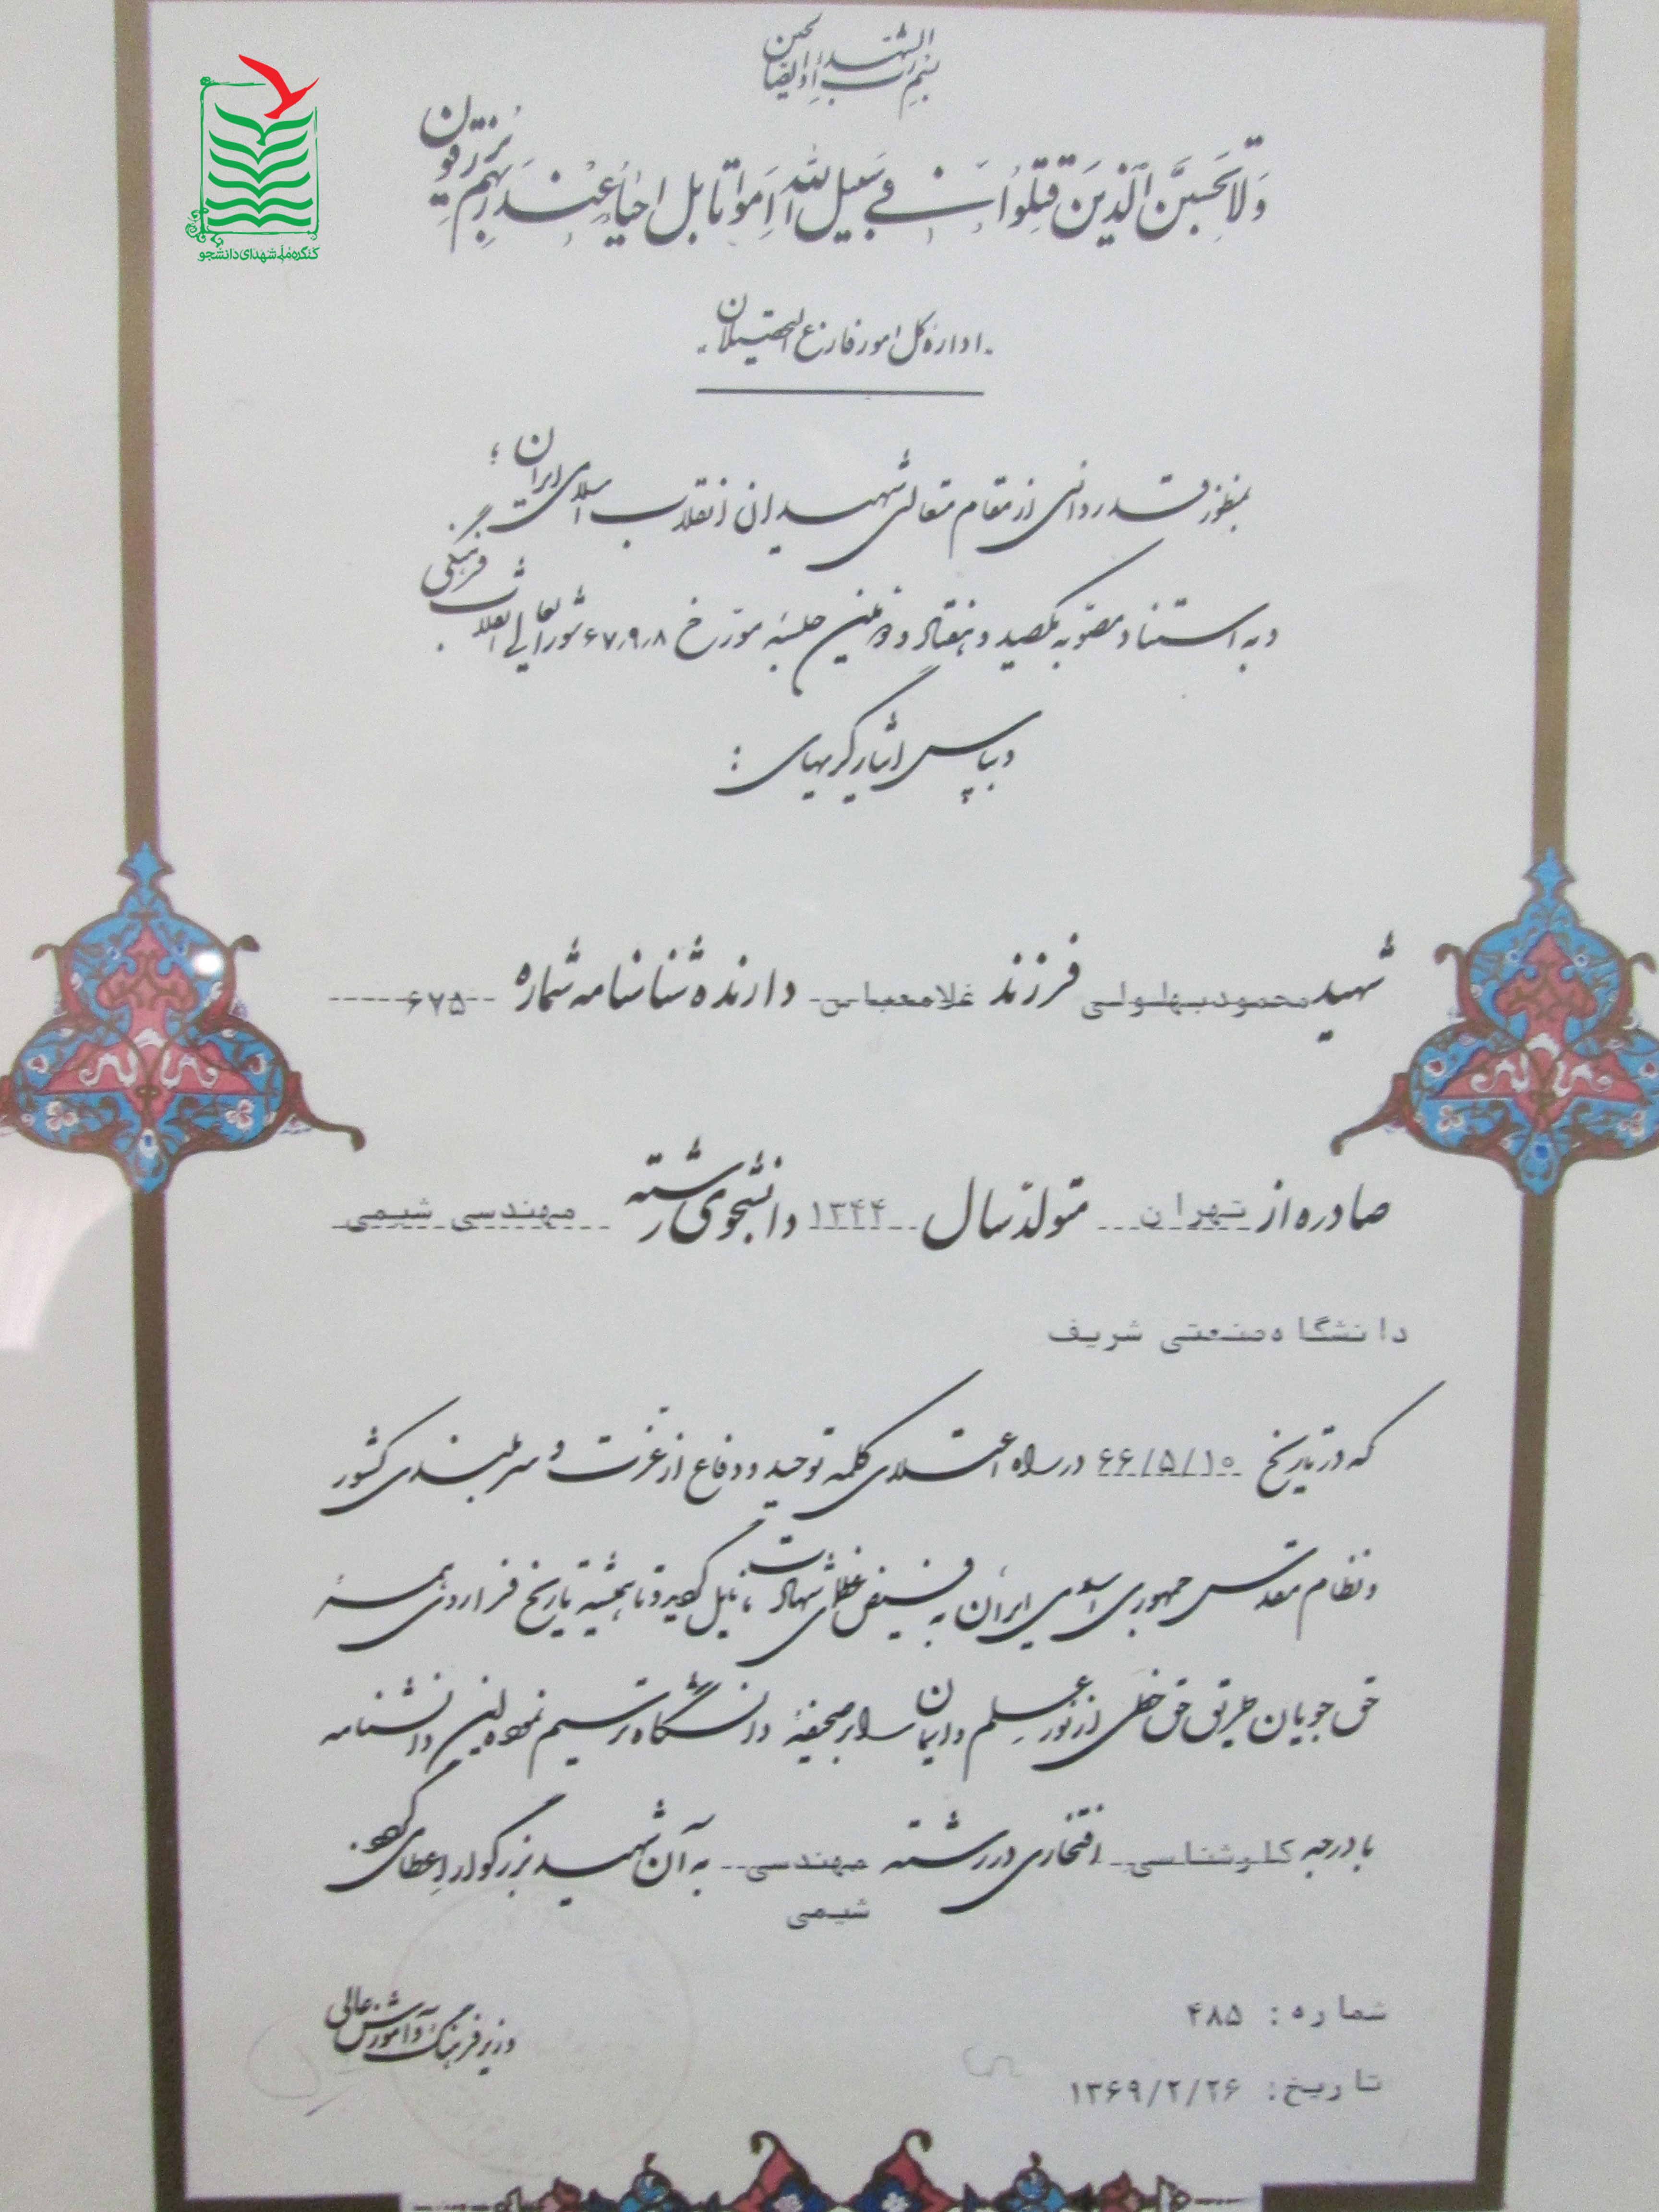 بسم رب الشهداء و الصالحین
وَلاتَحسَبَنَّ الَّذینَ قُتِلوُا فی سَبیلِ اللهِ اَمواتا بَل احیاءٌ عِندَ رَبِهِم یُرزَقوُن
کنگره ملی شهدای دانشجو
اداره کل امور فارغ التحصیلان
بمنظور قدردانی از مقام متعالی شهیدان انقلاب اسلامی ایران ؛
و به استناد مصوبه یکصد و هفتاد و دومین جلسه مورخ ۶۷٫۹٫۸ شورای عالی انقلاب فرهنگی
و بپاس ایثارگریهای :
شهید محمود بهلولی فرزند غلامعباس دارنده شناسنامه شماره ۶۷۵
صادره از تهران متولد سال ۱۳۴۴ دانشجوی رشته مهندسی شیمی
دانشگاه صنعتی شریف
که در تاریخ ۶۶/۵/۱۰ در راه اعتلای کلمه توحید و دفاع از عزت و سربلندی کشور
و نظام مقدس جمهوری اسلامی ایران به فیض عظمای شهادت نایل گردید و تا همیشه تاریخ فراروی همه
حق جویان طریق حق خطی از نور علم و ایمان را بر صحیفه دانشگاه ترسیم نموده این دانشنامه
با درجه کارشناسی افتخاری در رشته مهندسی به آن شهید بزرگوار اعطا می گردد.
شیمی
شماره : ۴۸۵
تاریخ : ۱۳۶۹/۲/۲۶
وزیر فرهنگ و آموزش عالی